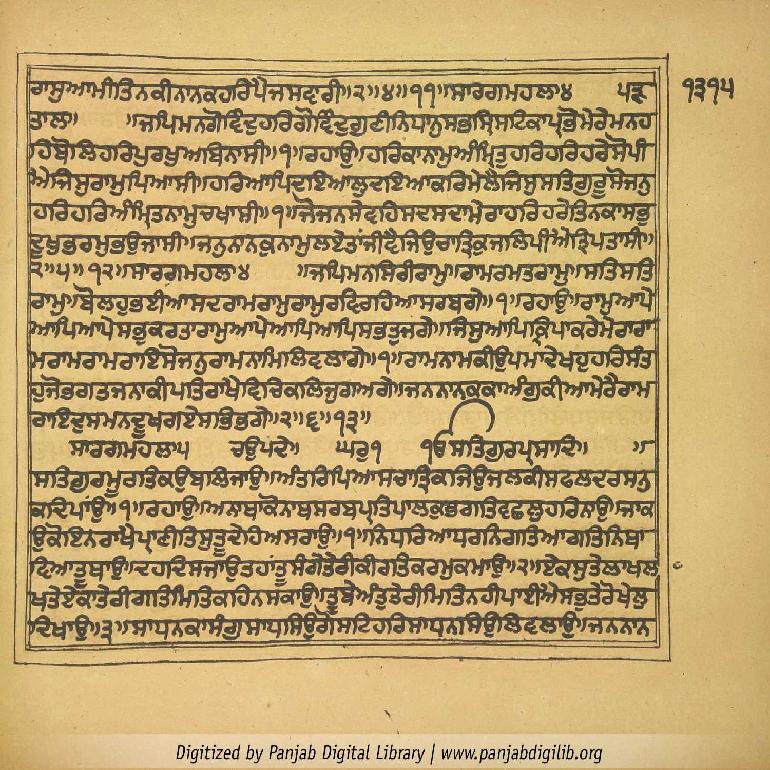 ਰਾਸੁਆਮੀਤਿਨਕੀਨਾਨਕਹਰਿਪੈਜਸਵਾਰੀ॥੨॥੪॥੧੧॥ਸਾਰਗਮਹਲਾ੪ ਪੜ ੧੩੧੫
ਤਾਲ॥ ॥ਜਪਿਮਨਗੋਵਿੰਦੁਹਰਿਗੋਵਿੰਦੁਗੁਣੀਨਿਧਾਨੁਸਭਸ੍ਰਿਸਟਿਕਾਪ੍ਰਭੋਮੇਰੇਮਨਹ
ਰਿਬੋਲਿਹਰਿਪੁਰਖੁਅਬਿਨਾਸੀ॥੧॥ਰਹਾਉ॥ਹਰਿਕਾਨਾਮੁਅੰਮ੍ਰਿਤੁਹਰਿਹਰਿਹਰੇਸੋਪੀ
ਐਜਿਸੁਰਾਮੁਪਿਆਸੀ॥ਹਰਿਆਪਿਦਇਆਲੁਦਇਆਕਰਿਮੇਲੈਜਿਸੁਸਤਿਗੁਰੂਸੋਜਨੁ
ਹਰਿਹਰਿਅੰਮ੍ਰਿਤਨਾਮੁਚਖਾਸੀ॥੧॥ਜੋਜਨਸੇਵਹਿਸਦਸਦਾਮੇਰਾਹਰਿਹਰੇਤਿਨਕਾਸਭੁ
ਦੂਖੁਭਰਮੁਭਉਜਾਸੀ॥ਜਨੁਨਾਨਕੁਨਾਮੁਲਏਤਾਂਜੀਵੈਜਿਉਚਾਤ੍ਰਿਕੁਜਲਿਪੀਐਤ੍ਰਿਪਤਾਸੀ॥
੨॥੫॥੧੨॥ਸਾਰਗਮਹਲਾ੪ ॥ਜਪਿਮਨਸਿਰੀਰਾਮੁ॥ਰਾਮਰਮਤਰਾਮੁ॥ਸਤਿਸਤਿ
ਰਾਮੁ॥ਬੋਲਹੁਭਈਆਸਦਰਾਮਰਾਮੁਰਾਮੁਰਵਿਰਹਿਆਸਰਬਗੇ॥੧॥ਰਹਾਉ॥ਰਾਮੁਆਪੇ
ਆਪਿਆਪੇਸਭੁਕਰਤਾਰਾਮੁਆਪੇਆਪਿਆਪਿਸਭਤੁਜਗੇ॥ਜਿਸੁਆਪਿਕ੍ਰਿਪਾਕਰੇਮੇਰਾਰਾ
ਮਰਾਮਰਾਮਰਾਇਸੋਜਨੁਰਾਮਨਾਮਿਲਿਵਲਾਗੇ॥੧॥ਰਾਮਨਾਮਕੀਉਪਮਾਦੇਖਹੁਹਰਿਸੰਤ
ਹੁਜੋਭਗਤਜਨਾਕੀਪਤਿਰਾਖੈਵਿਚਿਕਲਿਜੁਗਅਗੇ॥ਜਨਨਾਨਕਕਾਅੰਗੁਕੀਆਮੇਰੈਰਾਮ
ਰਾਇਦੁਸਮਨਦੂਖਗਏਸਭਿਭਗੇ॥੨॥੬॥੧੩॥
ਸਾਰਗਮਹਲਾ੫ ਚਉਪਦੇ॥ ਘਰੁ੧ ੴਸਤਿਗੁਰਪ੍ਰਸਾਦਿ॥ ॥
ਸਤਿਗੁਰਮੂਰਤਿਕਉਬਲਿਜਾਉ॥ਅੰਤਰਿਪਿਆਸਚਾਤ੍ਰਿਕਜਿਉਜਲਕੀਸਫਲਦਰਸਨੁ
ਕਦਿਪਾਂਉ॥੧॥ਰਹਾਉ॥ਅਨਾਥਾਕੋਨਾਥੁਸਰਬਪ੍ਰਤਿਪਾਲਕੁਭਗਤਿਵਛਲੁਹਰਿਨਾਉ॥ਜਾਕ
ਉਕੋਇਨਰਾਖੈਪ੍ਰਾਣੀਤਿਸੁਤੂਦੇਹਿਅਸਰਾਉ॥੧॥ਨਿਧਰਿਆਧਰਨਿਗਤਿਆਗਤਿਨਿਥਾ
ਵਿਆਤੂਥਾਉ॥ਦਹਦਿਸਜਾਂਉਤਹਾਂਤੂਸੰਗੇਤੇਰੀਕੀਰਤਿਕਰਮਕਮਾਉ॥੨॥ਏਕਸੁਤੇਲਾਖਲਾ
ਖਤੇਏਕਾਤੇਰੀਗਤਿਮਿਤਿਕਹਿਨਸਕਾਉ॥ਤੂਬੇਅੰਤੁਤੇਰੀਮਿਤਿਨਹੀਪਾਈਐਸਭੁਤੇਰੋਖੇਲੁ
ਦਿਖਾਉ॥੩॥ਸਾਧਨਕਾਸੰਗੁਸਾਧਸਿਉਗੋਸਟਿਹਰਿਸਾਧਨਸਿਉਲਿਵਲਾਉ॥ਜਨਨਾਨ
Digitized by Panjab Digital Library | www.panjabdigilib.org